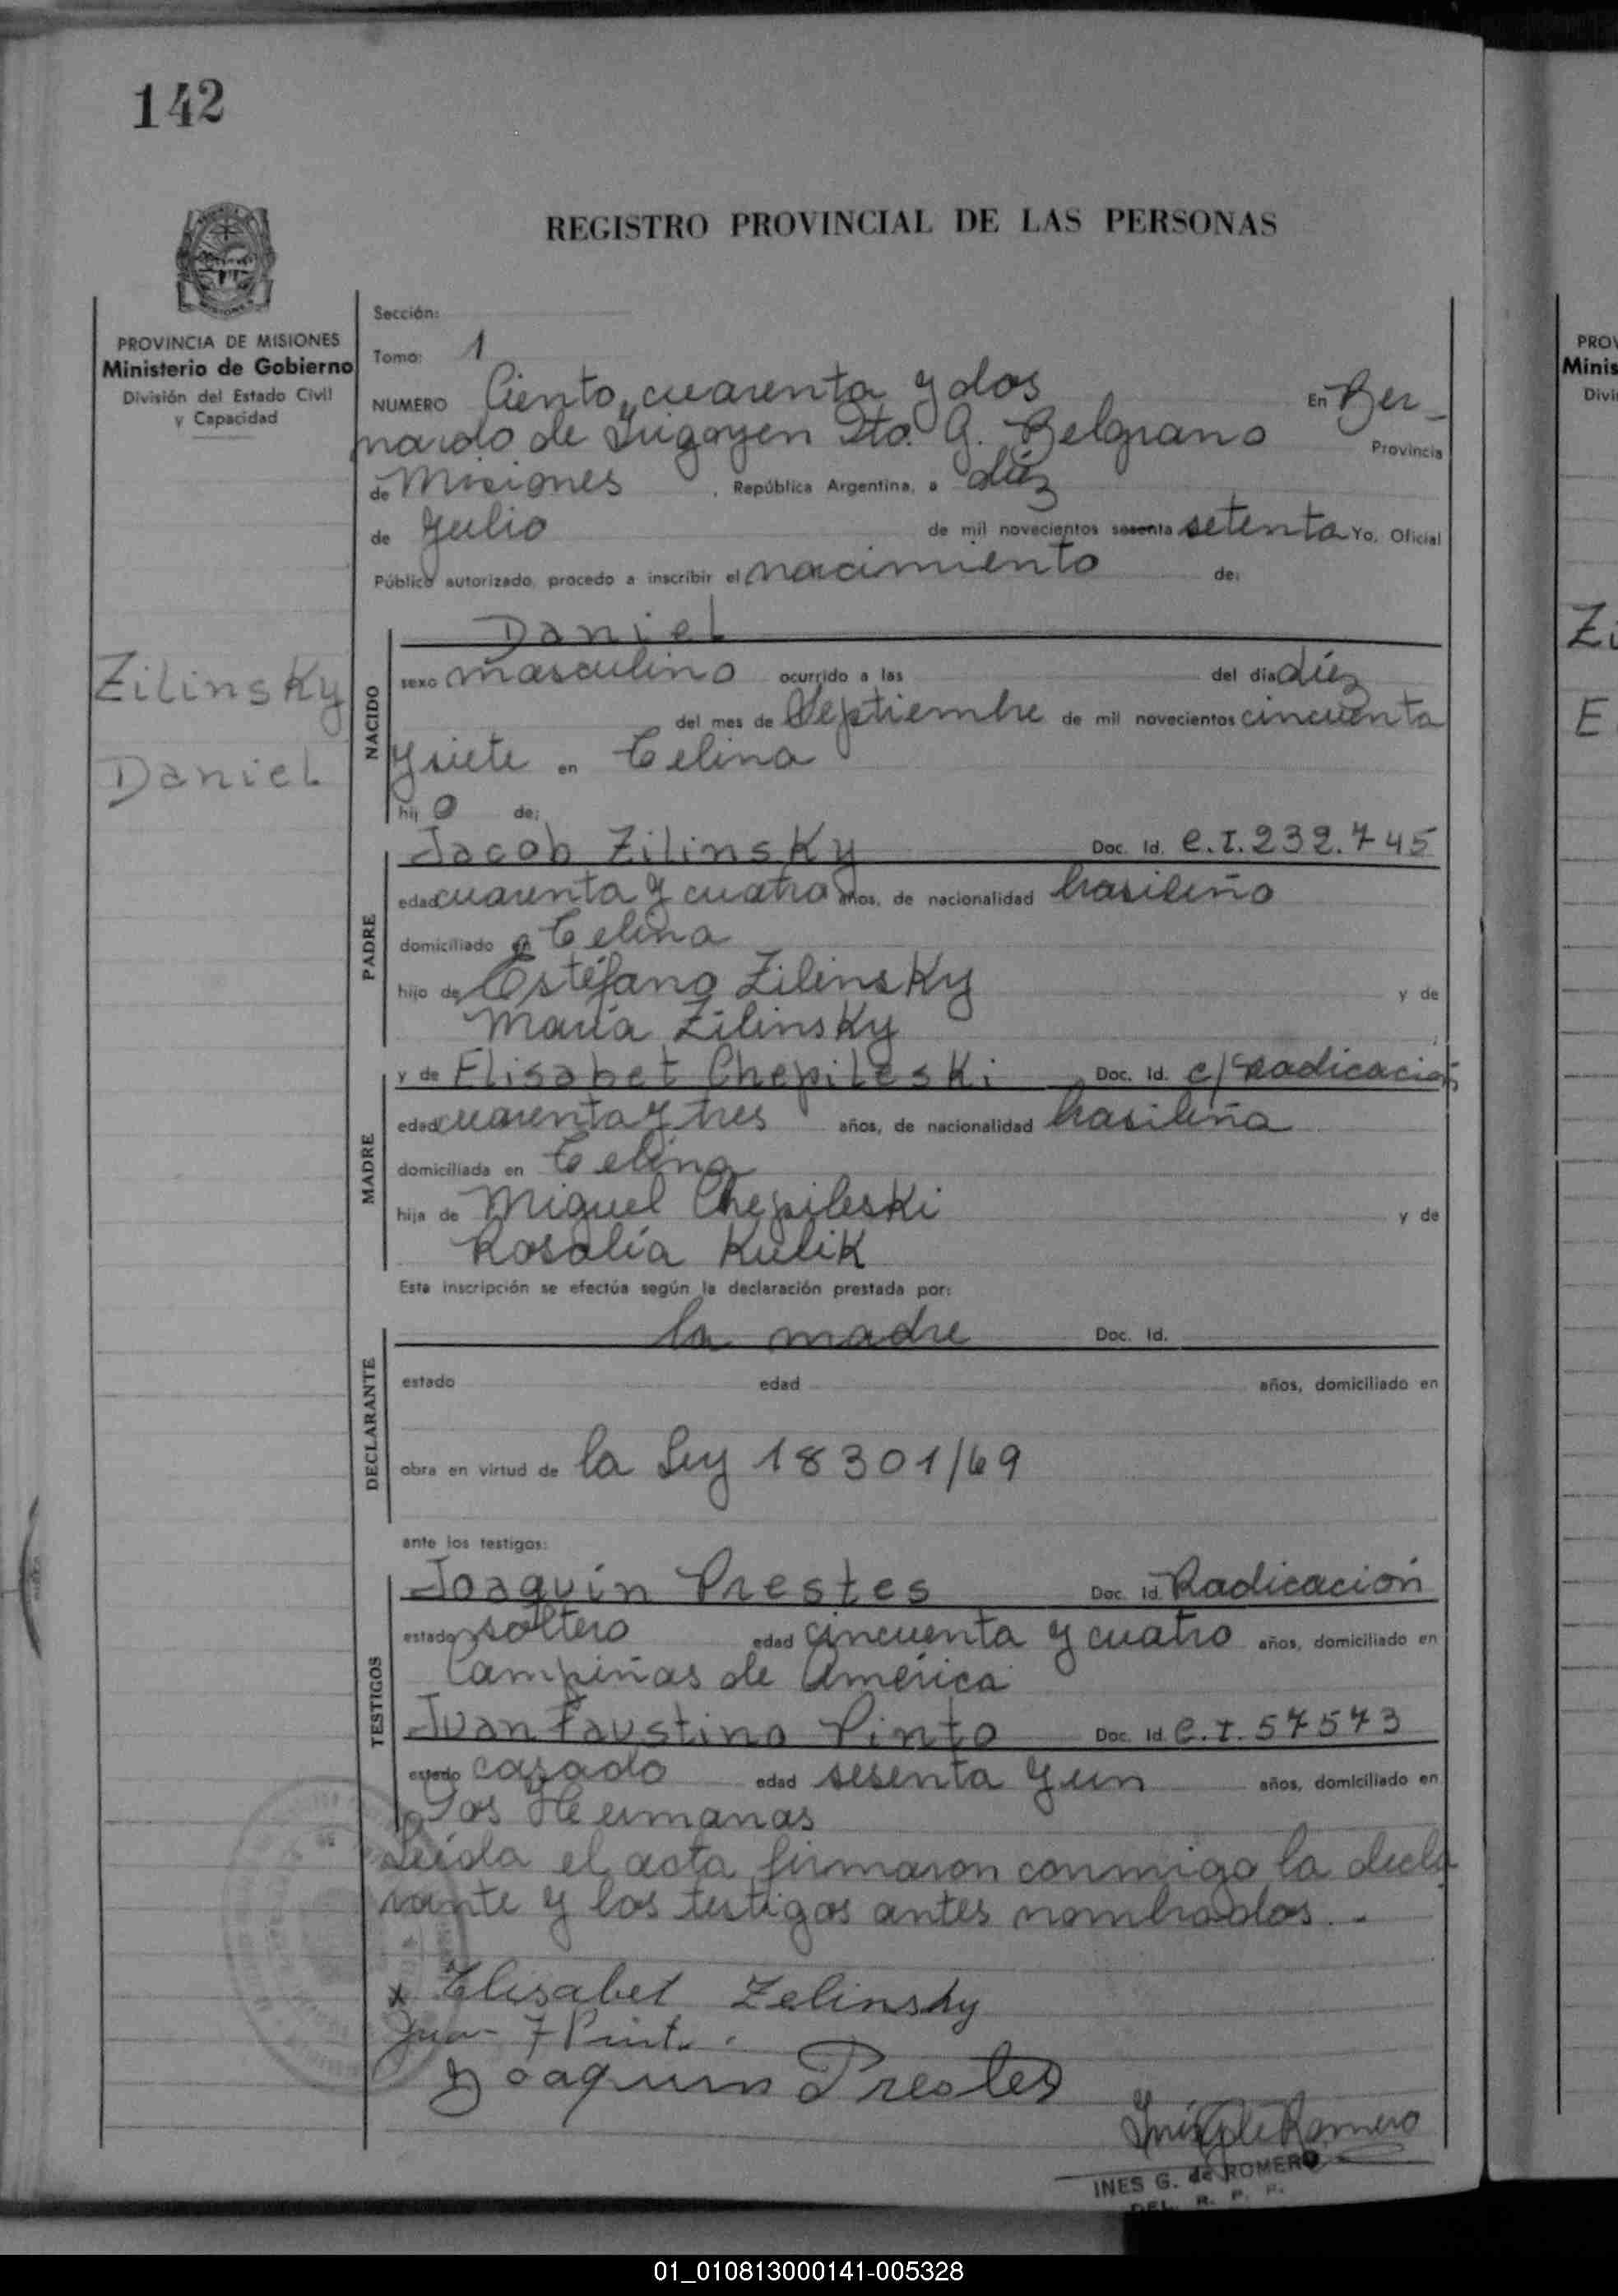 142
REGISTRO PROVINCIAL DE LAS PERSONAS
PROVINCIA DE MISIONES
Ministerio de Gobierno
División del Estado Civil
y Capacidad
Sección:
Tomo: 1
NUMERO Ciento cuarenta y dos En Ber-
nardo de Irigoyen Dto. G. Belgrano Provincia
de Misiones, República Argentina, a diéz
de Julio de mil novecientos sesenta setenta Yo, Oficial
Público autorizado, procedo a inscribir el nacimiento de:
Zilinsky
Daniel
NACIDO
Daniel
sexo masculino ocurrido a las del día diéz
del mes de Septiembre de mil novecientos cincuenta
y siete en Celina
hij o de:
PADRE
Jacob Zilinsky Doc. Id. C.I. 232.745
edad cuarenta y cuatro años, de nacionalidad brasileño
domiciliado en Celina
hijo de Estéfano Zilinsky y de
María Zilinsky
MADRE
y de Elisabet Chepileski Doc. Id. c/radicación
edad cuarenta y tres años, de nacionalidad brasileña
domiciliada en Celina
hija de Miguel Chepileski y de
Rosalía Kulik
Esta inscripción se efectúa según la declaración prestada por:
DECLARANTE
la madre Doc. Id.
estado edad años, domiciliado en
obra en virtud de la Ley 18301/69
ante los testigos:
TESTIGOS
Joaquín Prestes Doc. Id. Radicación
estado soltero edad cincuenta y cuatro años, domiciliado en
Campiñas de América
Juan Faustino Pinto Doc. Id. C.I. 57573
estado casado edad sesenta y un años, domiciliado en
Dos Hermanas
Leída el acta firmaron conmigo la decla
rante y los testigos antes nombrados.-
x Elisabet Zelinsky
Juan F Pinto
Joaquim Prestes
Inés G de Romero
INES G. de ROMERO
DEL. R. P. P.
PROV
Minis
Divi
Zi
E
01_010813000141-005328